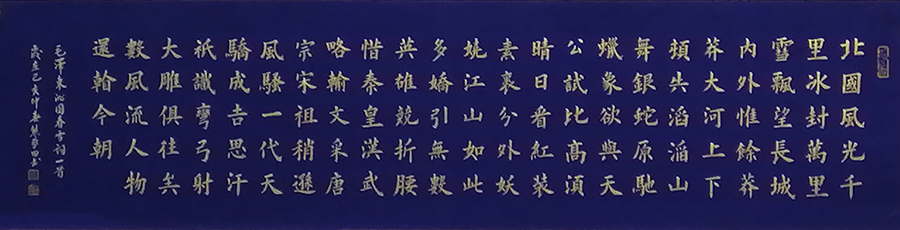 北國風光千
里冰封萬里
雪飄望長城
內外惟餘莽
莽大河上下
頓失滔滔山
舞銀蛇原馳
蠟象欲與天
公試比高須
晴日看紅裝
素裹分外妖
嬈江山如此
多嬌引無數
英雄競折腰
惜秦皇漢武
略輸文采唐
宗宋祖稍遜
風騷一代天
驕成吉思汗
祇識彎弓射
大雕俱往矣
數風流人物
還看今朝
毛澤東沁園春雪詞一首
歲在己亥仲春書